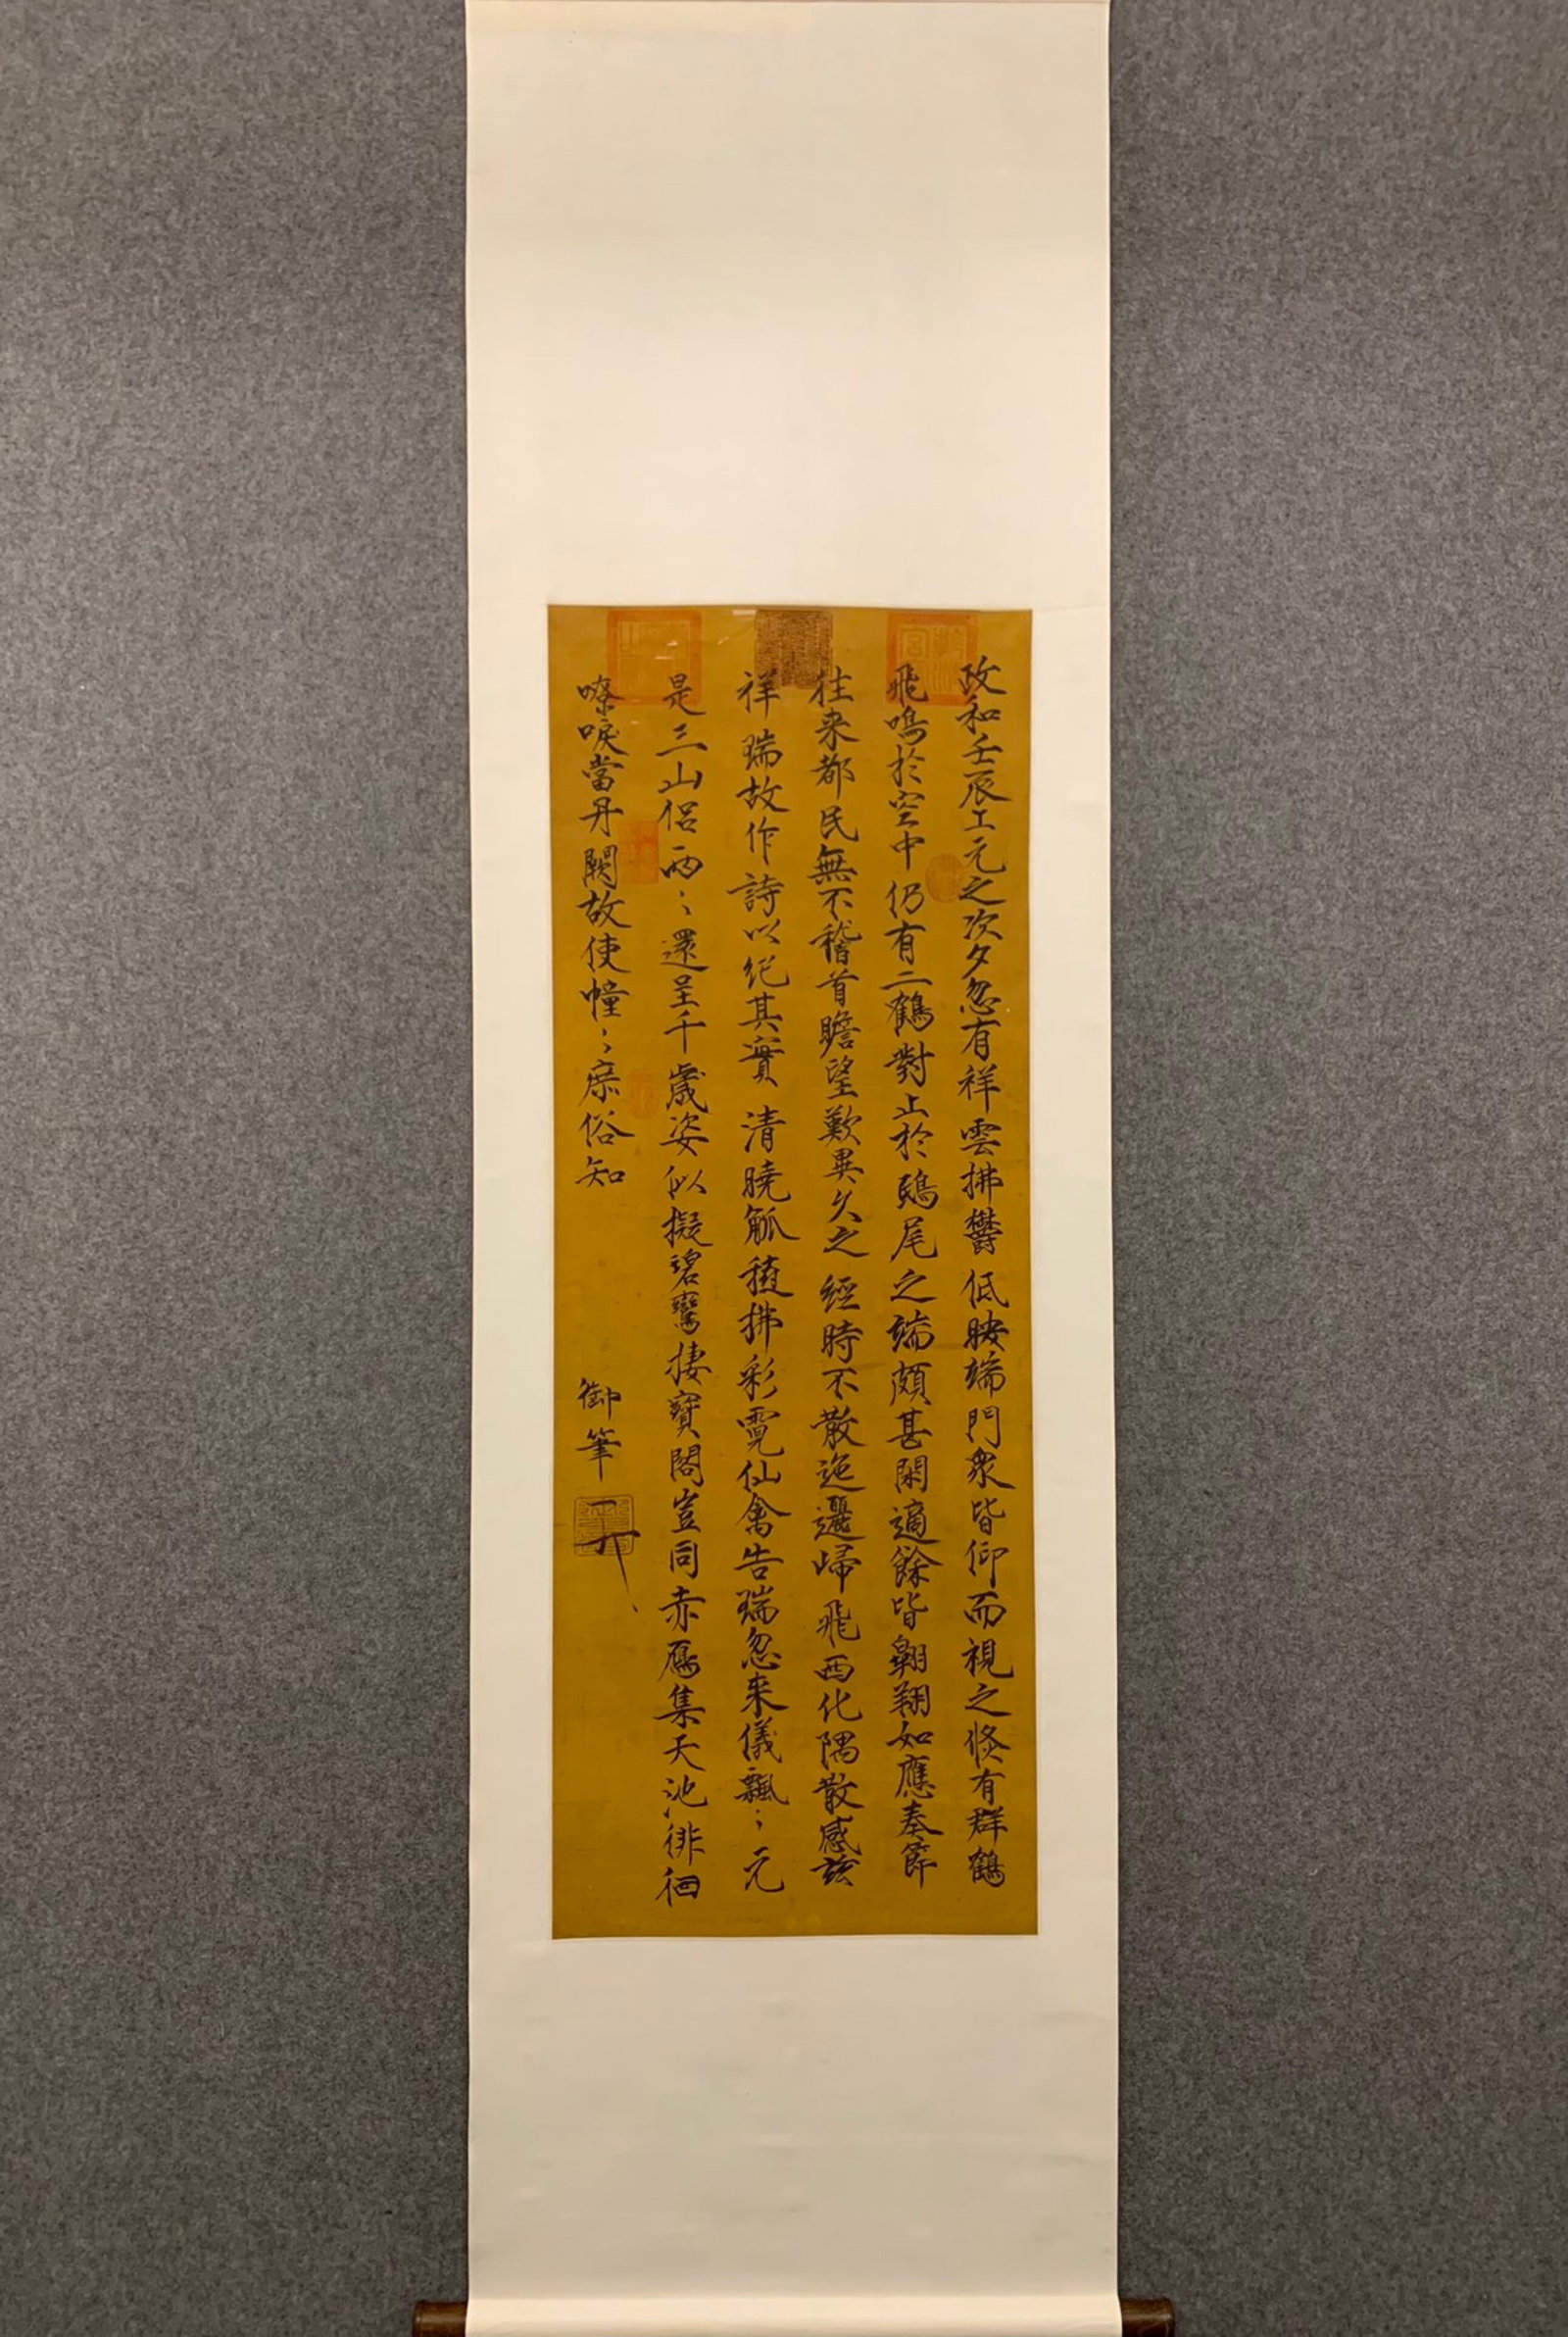 政和壬辰上元之次夕忽有祥雲拂鬱低映端門衆皆仰而視之倏有群鶴
飛鳴於空中仍有二鶴對止於鴟尾之端頗甚閑適餘皆翱翔如應奏節
往来都民無不稽首瞻望歎異久之經時不散迤邐歸飛西北隅散感茲
祥瑞故作詩以紀其實 清曉觚稜拂彩霓仙禽告瑞忽来儀飄〻元
是三山侣兩〻還呈千歲姿似擬碧鸞棲寶閣豈同赤鴈集天池徘徊
嘹唳當丹闕故使憧〻庶俗知
御筆